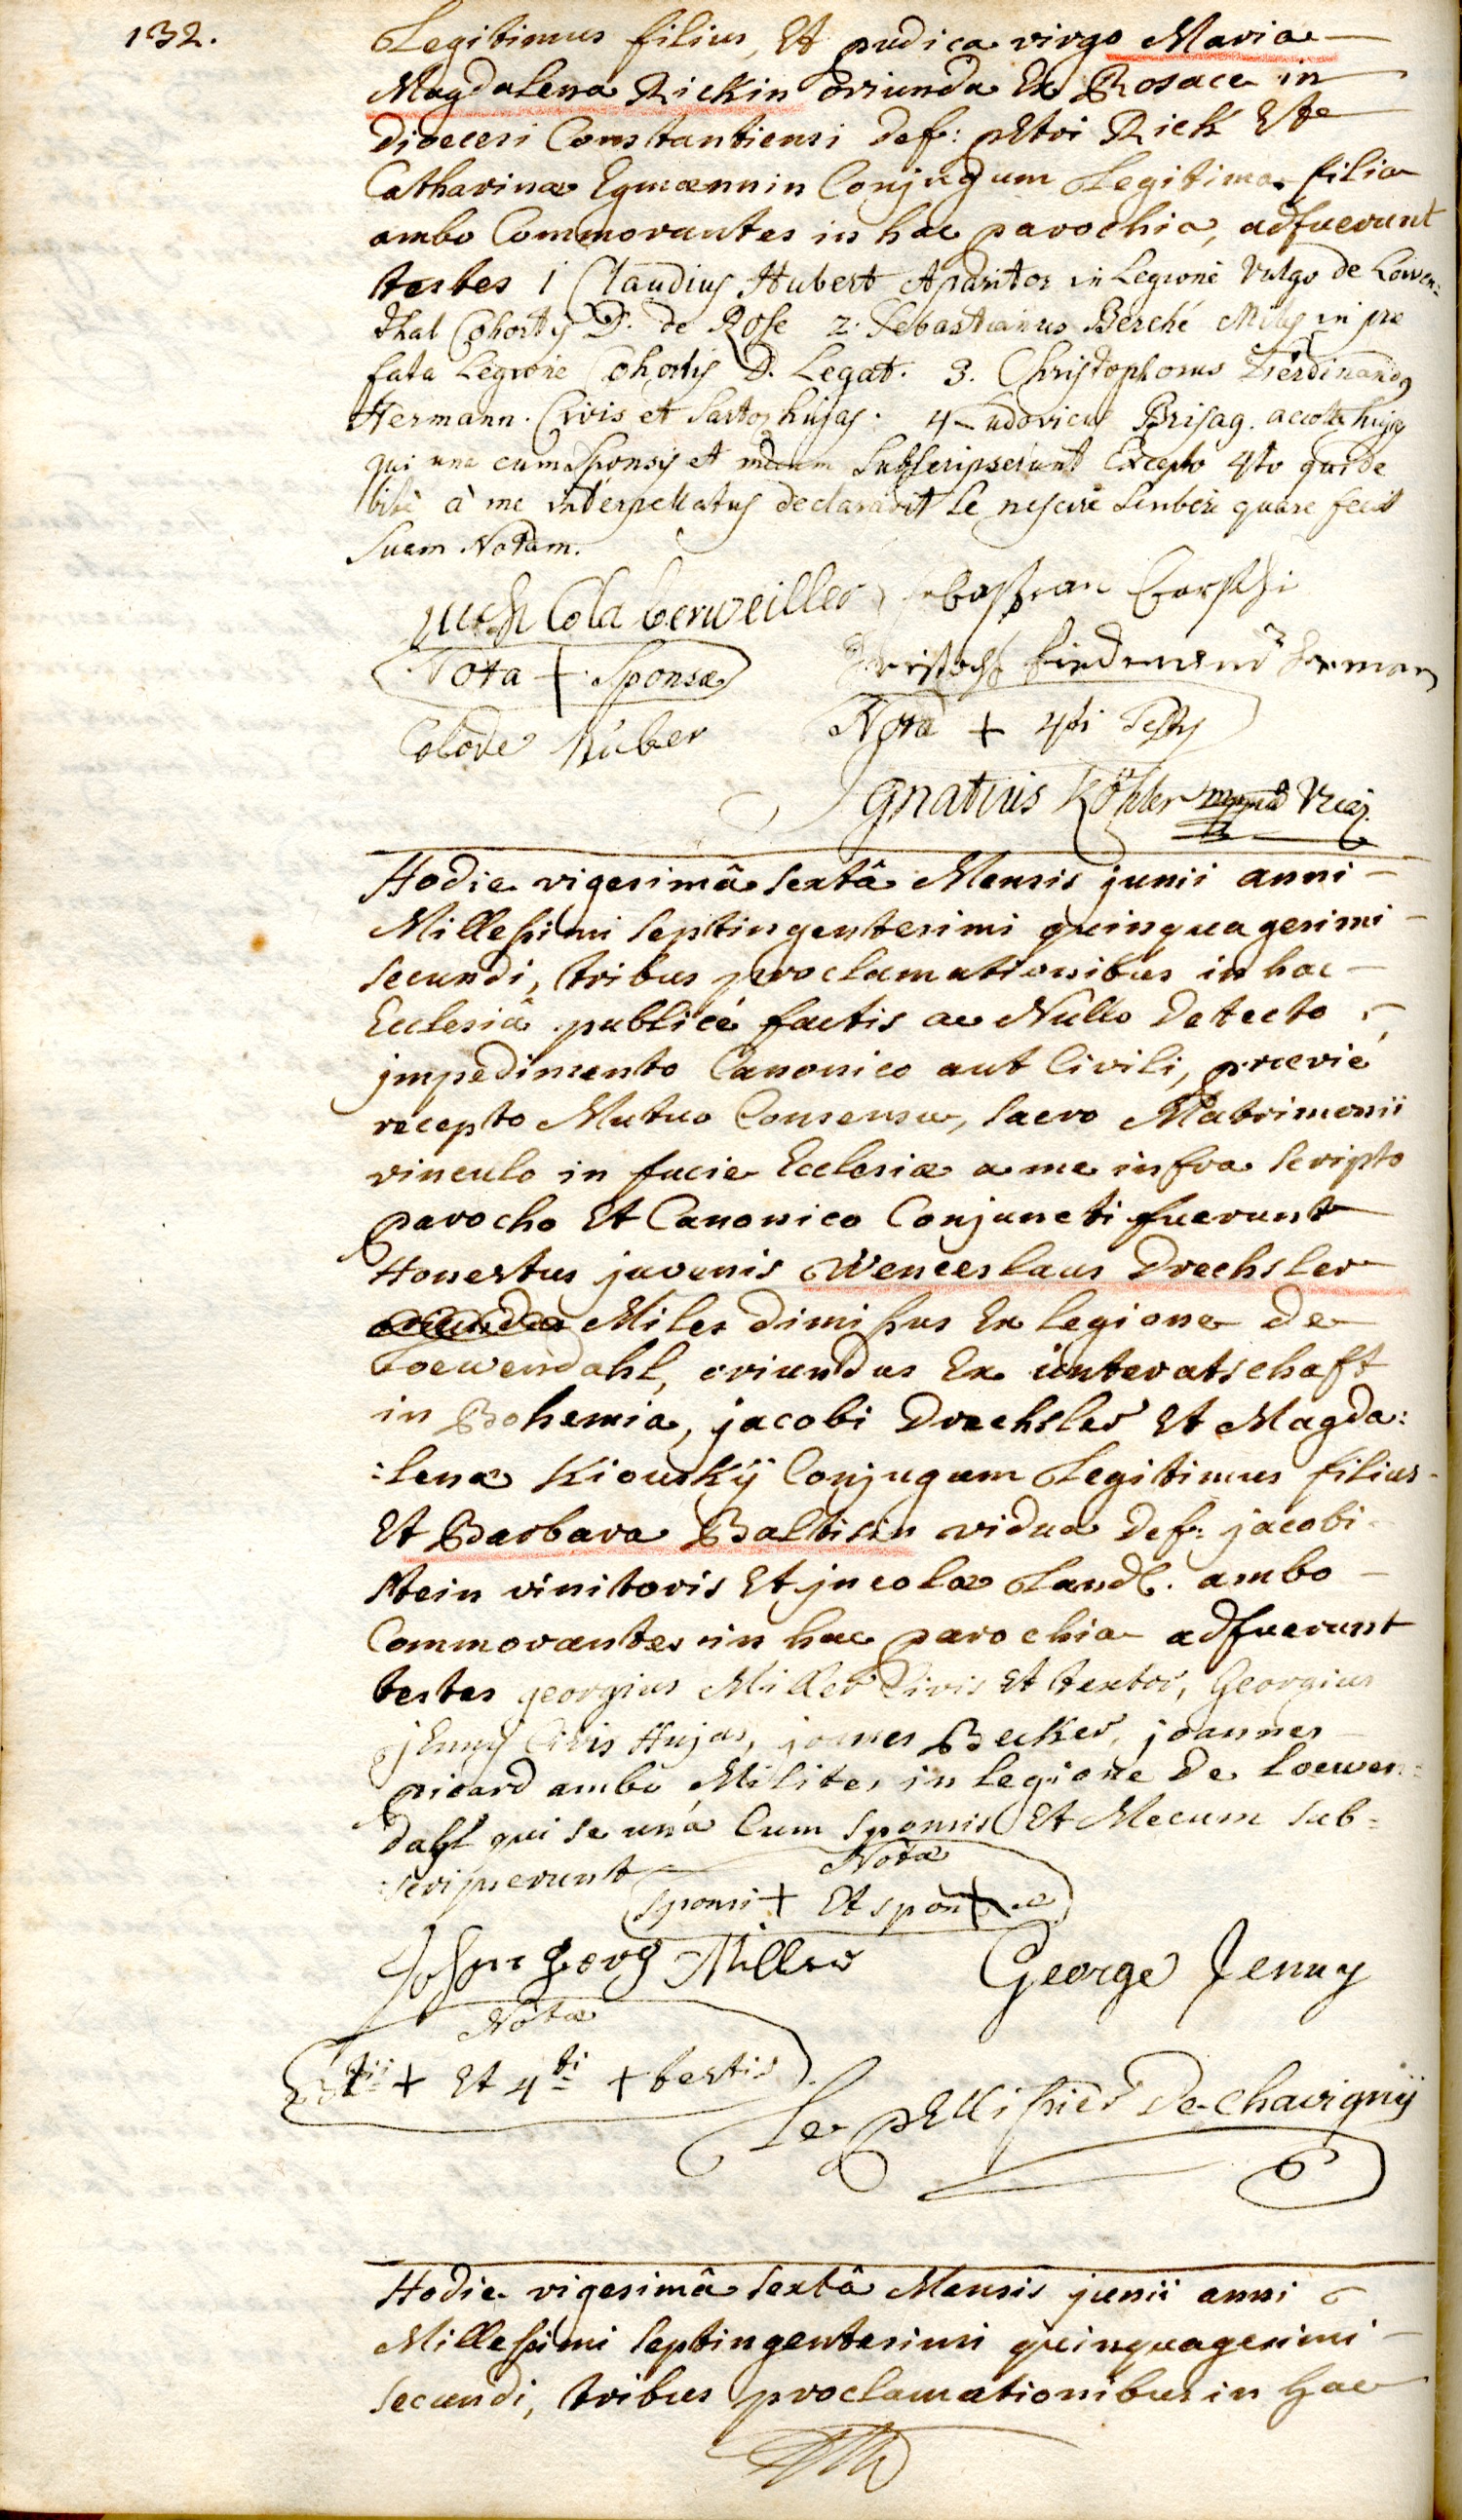 132.
Legitimus filius, Et pudica virgo Maria
Magdalena Rickin oriunda Ex Rosace in
dioecesi Constantiensi def: pEtri Rick Et
Catharinæ Egmannin Conjugum Legitima filia
ambo Commorantes in hac parochia, adfuerunt
testes 1 Claudius Hubert Aparitor in Legione vulgo de Löwen=
dhal Cohortis D. de Rose 2. Sebastianus Berché Miles in præ
fata Legione Cohortis D. Legat. 3. Christophorus Ferdinandus
Hermann. Civis et Sartor hujas. 4 Ludovicus Brisag. accola hujas
qui una cum Sponsis et mecum Subscripserunt Excepto 4to qui de
bitè à me interpellatus declaravit se nescire scribere quare fecit
Suam Notam.
Cola berweiller
Nota + Sponsæ
Colode Huber
Nota + 4ti Testis
Ignatius Köhler Vicar.
Hodie vigesimâ Sextâ Mensis junii anni
Millesimi Septingentesimi quinquagesimi
Secundi, tribus proclamationibus in hac
Ecclesiâ publicé factis ac Nullo Detecto
jmpedimento Canonico aut Civili, prævié
recepto Mutuo Consensu, Sacro Matrimonii
vinculo in facie Ecclesiæ a me infra Scripto
parocho Et Canonico Conjuncti fuerunt
Honestus juvenis Wenceslaus Drechsler
Miles dimissus Ex legione de
Loewendahl, oriundus Ex unteratschaft
in Bohemia, jacobi Drechsler Et Magda:
:lenæ Kiouskÿ Conjugum Legitimus filius
Et Barbara Baltisin vidua def: jacobi
Stein vinitoris Et jncolæ Land. ambo
Commorantes in hac parochia adfuerunt
testes georgius Miller Civis Et textor, Georgius
jEnny Civis Hujas, joannes Becker, joannes
picard ambo Milites in legione De Loewen=
dahl qui se una Cum Sponsis Et Mecum Sub=
:scripserunt
Nota
Sponsi + Et sponsæ +
Johann georg Miller George Jenny
Nota
3tii + Et 4ti + testis
Le pEllissier De Chavignÿ
Hodie vigesimâ Sextâ Mensis junii anni
Millesimi Septingentesimi quinquagesimi
Secundi, tribus proclamationibus in hac